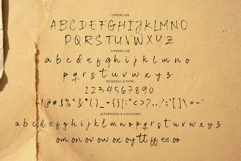 UPPERCASE
ABCDEFGHIJKLMNO
PQRSTUVWXYZ
LOWERCASE
abcdefghijklmno
pqrstuvwxyz
NUMERAL & PUNC
1234567890
ALTERNATES & LIGATURES
abcdefghijklmnopqrstuvwxyz
om on ov ow ox oy tt ff ee oo